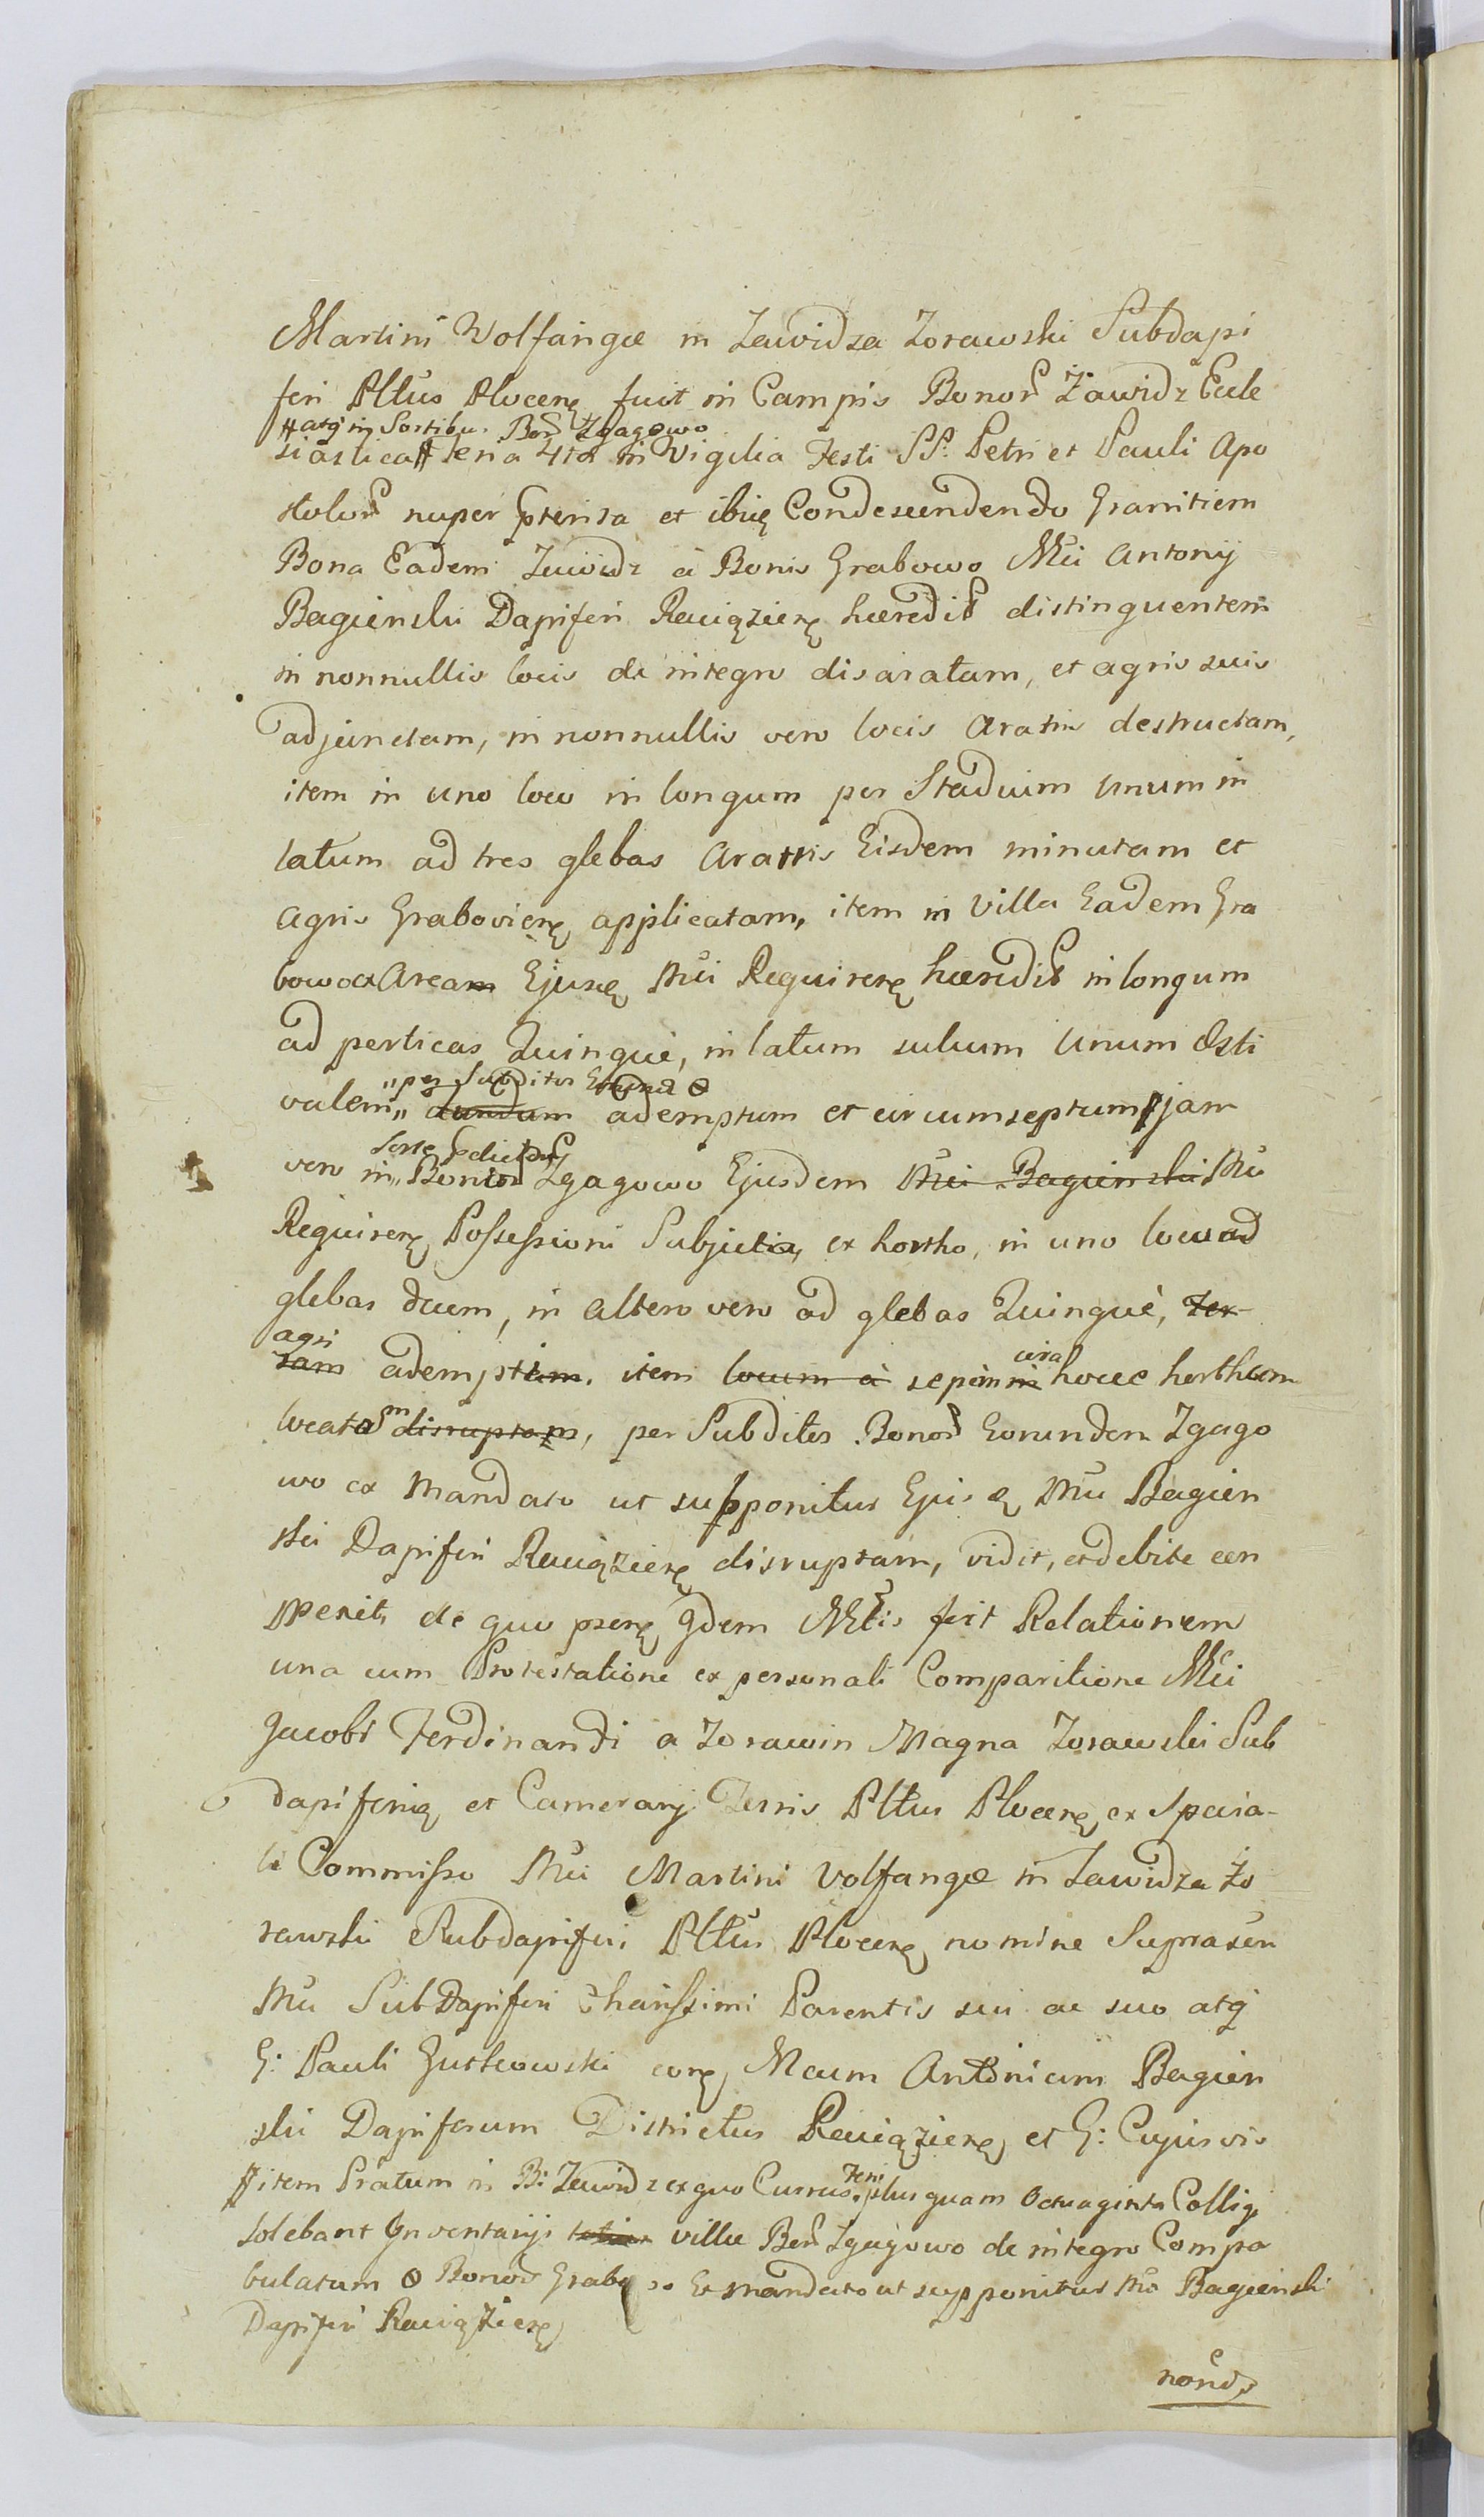 Martini Wolfangæ in Zawidza Zorawski Subdapi
feri Plltus Plocen. fuit in Campis Bonor Zawidz Eccle
# atq in Sortibus Bor Zgagowo
siastica # feria 4ta in Vigilia Festi SS. Petri et Pauli Apo
stolor nuper pterita et ibiq Condescendendo Granitiem
Bona Eadem Zawidz a Bonis Grabowo Mci Antonij
Bagienski Dapiferi Raciązien hæredit distinguentem
in nonnullis locis de integro disaratam, et agris suis
adjunctam, in nonnullis vero locis aratris destructam,
item in uno loco in longum per Stadium unum in
latum ad tres glebas Aratris Eisdem minutam et
agris Grabovien applicatam, item in Villa Eadem Gra
bowo ex Aream Ejusq Mci Requiren hæredit in longum
ad perticas Quinque, in latum sulum unum Osti
"per Subditos Eosd
valem " dandam ademptum et circumseptum # jam
Sorte
vero in " Bonor Zgagowo Ejusdem Mci Bagienski Mci
Requiren Possessioni Subjectis, ex hortho, in uno loco ad
glebas decem, in altero vero ad glebas Quinque, ter
agri
ram ademptam. item locum a sepim in circa hocce horthum
locatam disruptam, per Subditos Bonor Eorundem Zgago
wo ex Mandato ut supponitur Ejusq Mci Bagien
ski Dapiferi Raciązien disruptam, vidit, et debite con
spexit, de quo psen qdem Mtis fecit Relationem
una cum Protestatione ex personali Comparitione Mci
Jacobi Ferdinandi a Zorawin Magna Zorawski Sub
dapiferiq et Camerarij Terris Plltus Plocen ex Specia-
li Commisso Mci Martini Volfangæ in Zawidza Zo
rawski Subdapiferi Plltus Plocen nomine Suprascri
Mci SubDapiferi Charissimi Parentis sui ac suo atq
G: Pauli Gutkowski con Mcum Antonium Bagien
ski Dapiferum Districtus Raciązien et G: Cujusvis
# item Pratum in B: Zawidz ex quo Currus feni plusquam Octuaginta Colligi
solebant Inventarij totius villæ Bor Zgagowo de integro Compa
bulatum Bonor Grabowo Ex mandato ut supponitur Mci Bagienski
Dapiferi Raciązien